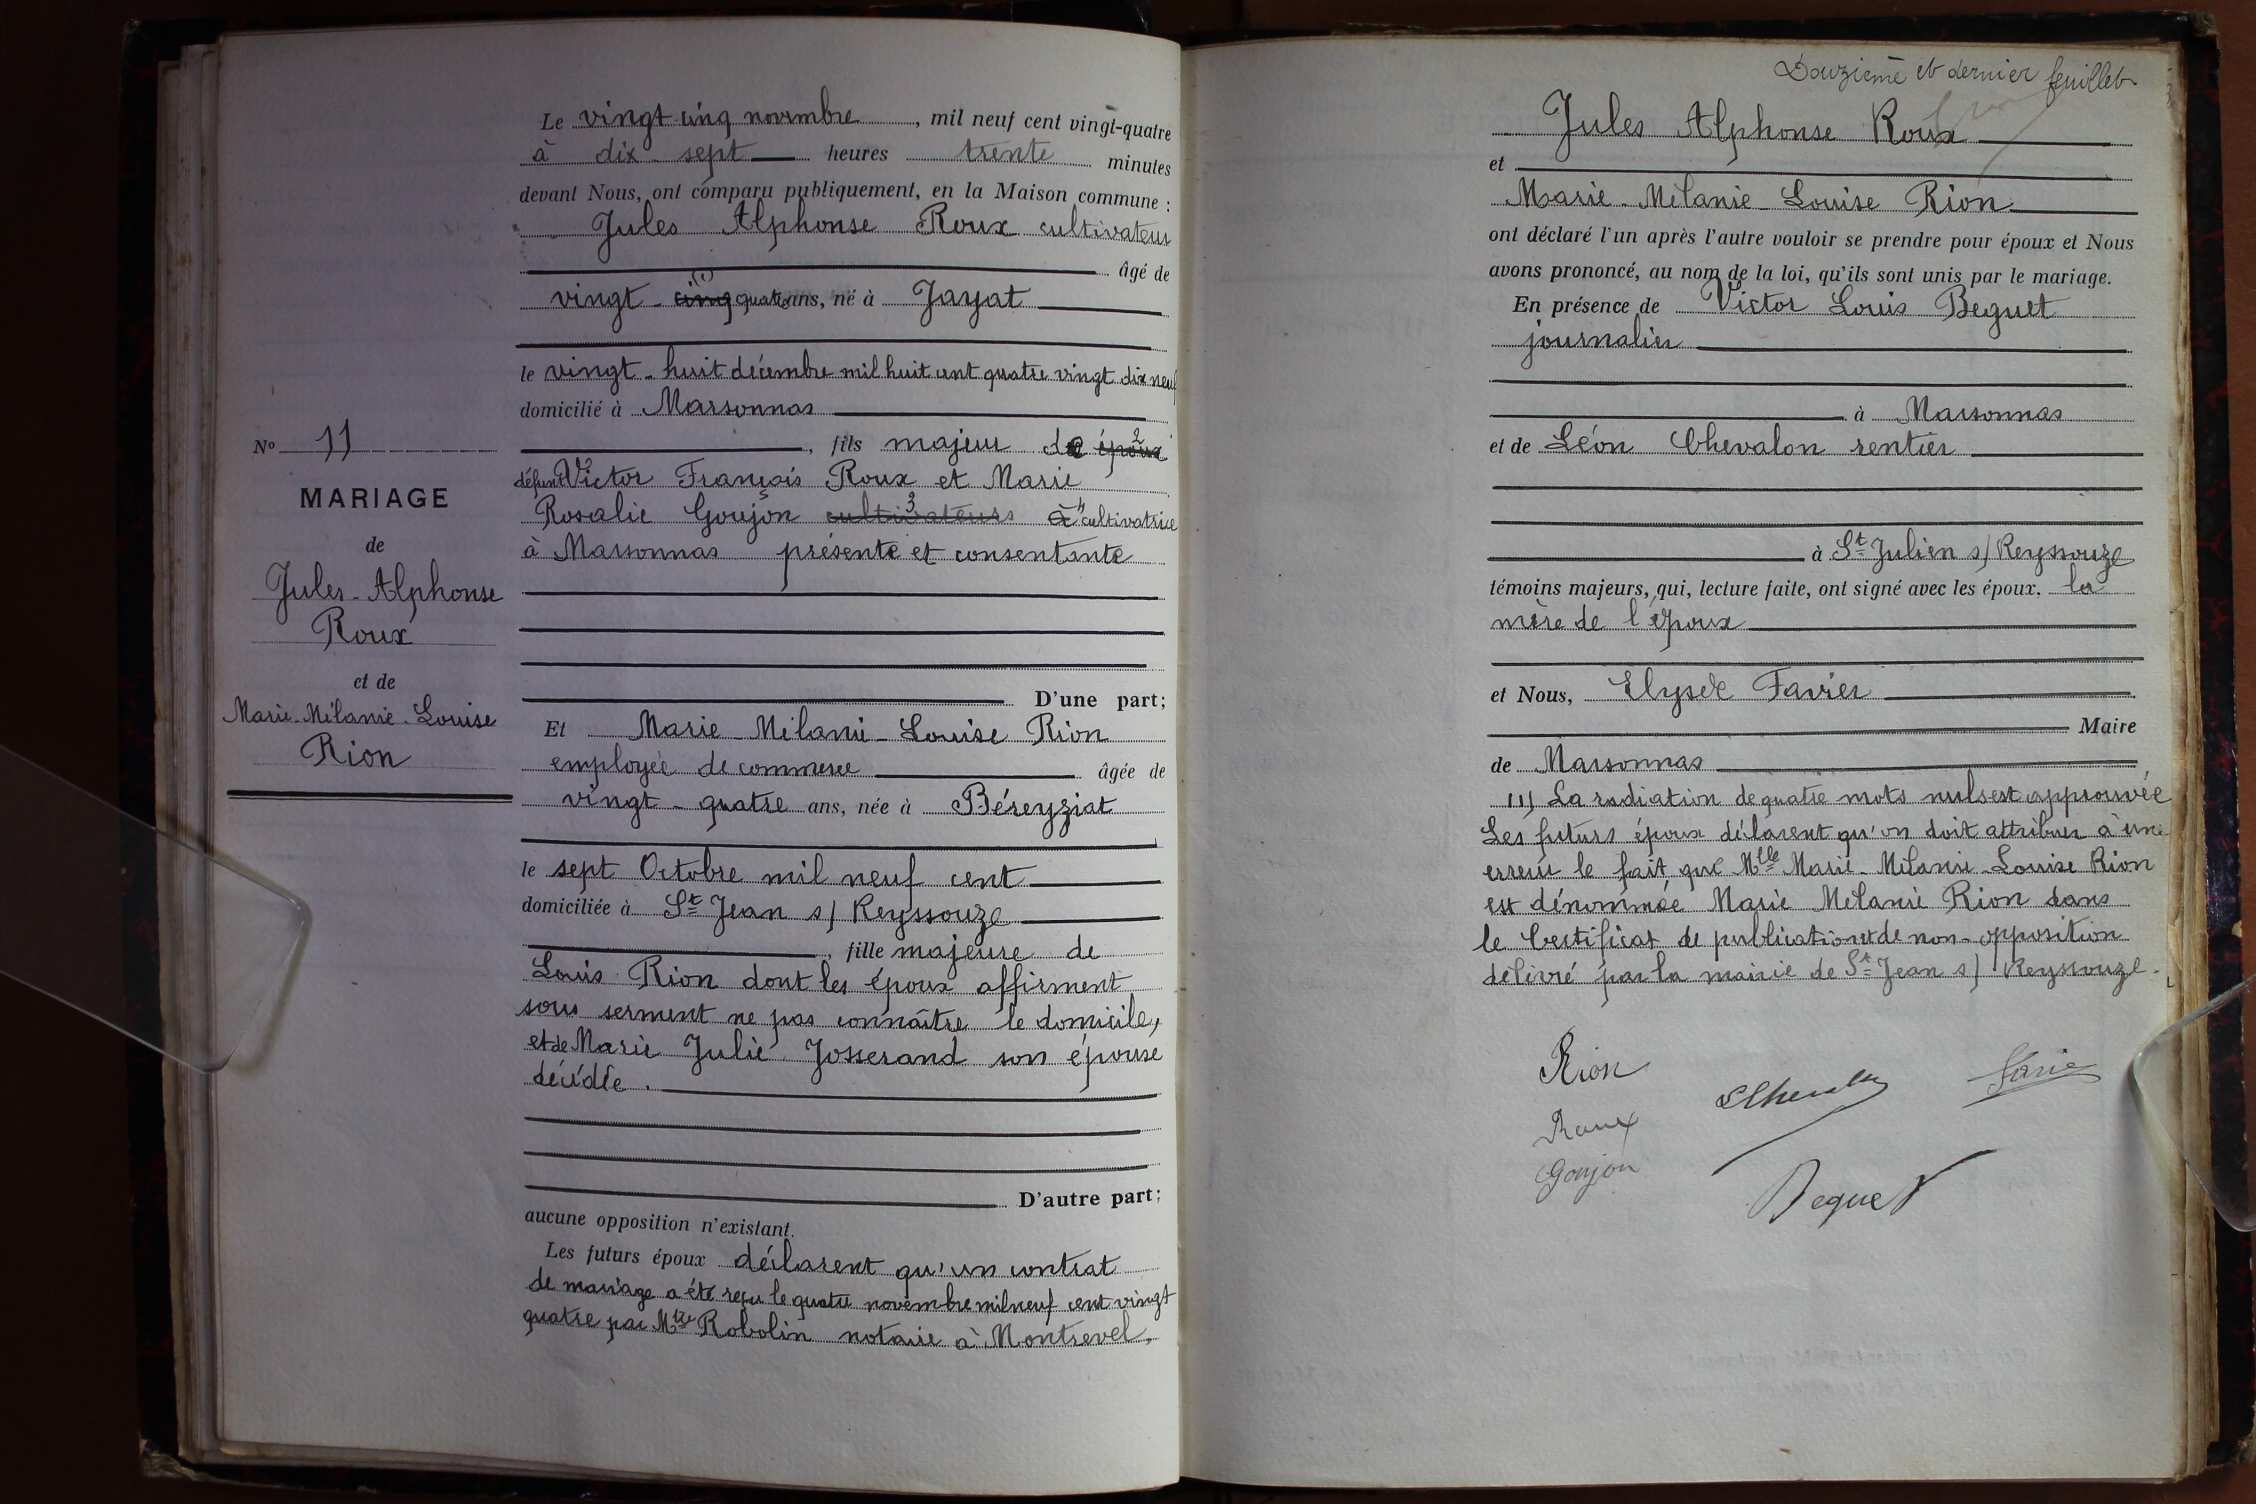 N° 11
MARIAGE
de
Jules-Alphonse
Roux
et de
Marie-Mélanie-Louise
Rion
Le vingt-cinq novembre, mil neuf cent vingt-quatre
à dix-sept heures trente minutes
devant Nous, ont comparu publiquement, en la Maison commune :
Jules Alphonse Roux cultivateur
âgé de
(1)
vingt-cinq quatre ans, né à Jayat
le vingt-huit décembre mil huit cent quatre vingt dix neuf
domicilié à Marsonnas
, fils majeur de époux 2
défunt Victor François Roux et Marie
Rosalie Goujon cultivateurs 3 à 4 cultivatrice
à Marsonnas présente et consentante
D'une part;
Et Marie-Mélanie-Louise Rion
employée de commerce âgée de
vingt-quatre ans, née à Béreyziat
le sept Octobre mil neuf cent
domiciliée à St Jean s/ Reyssouze
, fille majeure de
Louis Rion dont les époux affirment
sous serment ne pas connaître le domicile,
et de Marie Julie Josserand son épouse
décédée.
D'autre part;
aucune opposition n'existant.
Les futurs époux déclarent qu'un contrat
de mariage a été reçu le quatre novembre mil neuf cent vingt
quatre par Mtre Robolin notaire à Montrevel,
Douzième et dernier feuillet
Jules Alphonse Roux
et
Marie-Mélanie-Louise Rion
ont déclaré l'un après l'autre vouloir se prendre pour époux et Nous
avons prononcé, au nom de la loi, qu'ils sont unis par le mariage.
En présence de Victor Louis Beguet
journalier
à Marsonnas
et de Léon Chevalon rentier
à St Julien s/ Reyssouze
témoins majeurs, qui, lecture faite, ont signé avec les époux, la
mère de l'époux
et Nous, Elysée Favier
Maire
de Marsonnas
(1) La radiation de quatre mots nuls est approuvée
Les futurs époux déclarent qu'on doit attribuer à une
erreur le fait que Mlle Marie-Mélanie-Louise Rion
est dénommée Marie Mélanie Rion dans
le Certificat de publication et de non-opposition
délivré par la mairie de St Jean s/ Reyssouze.
Rion
Roux
Goujon
Beguet